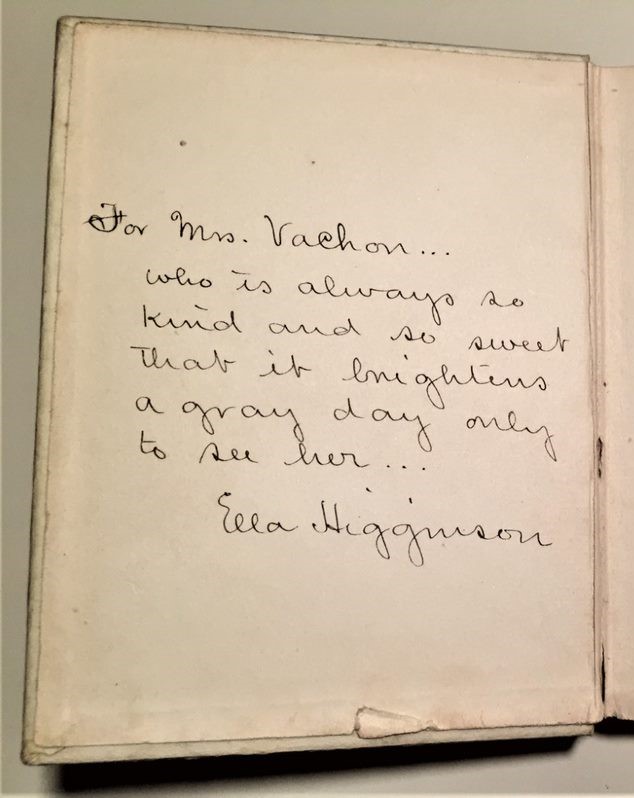 For Mrs. Vachon...
who is always so
kind and so sweet
that it brightens
a gray day only
to see her...
Ella Higginson